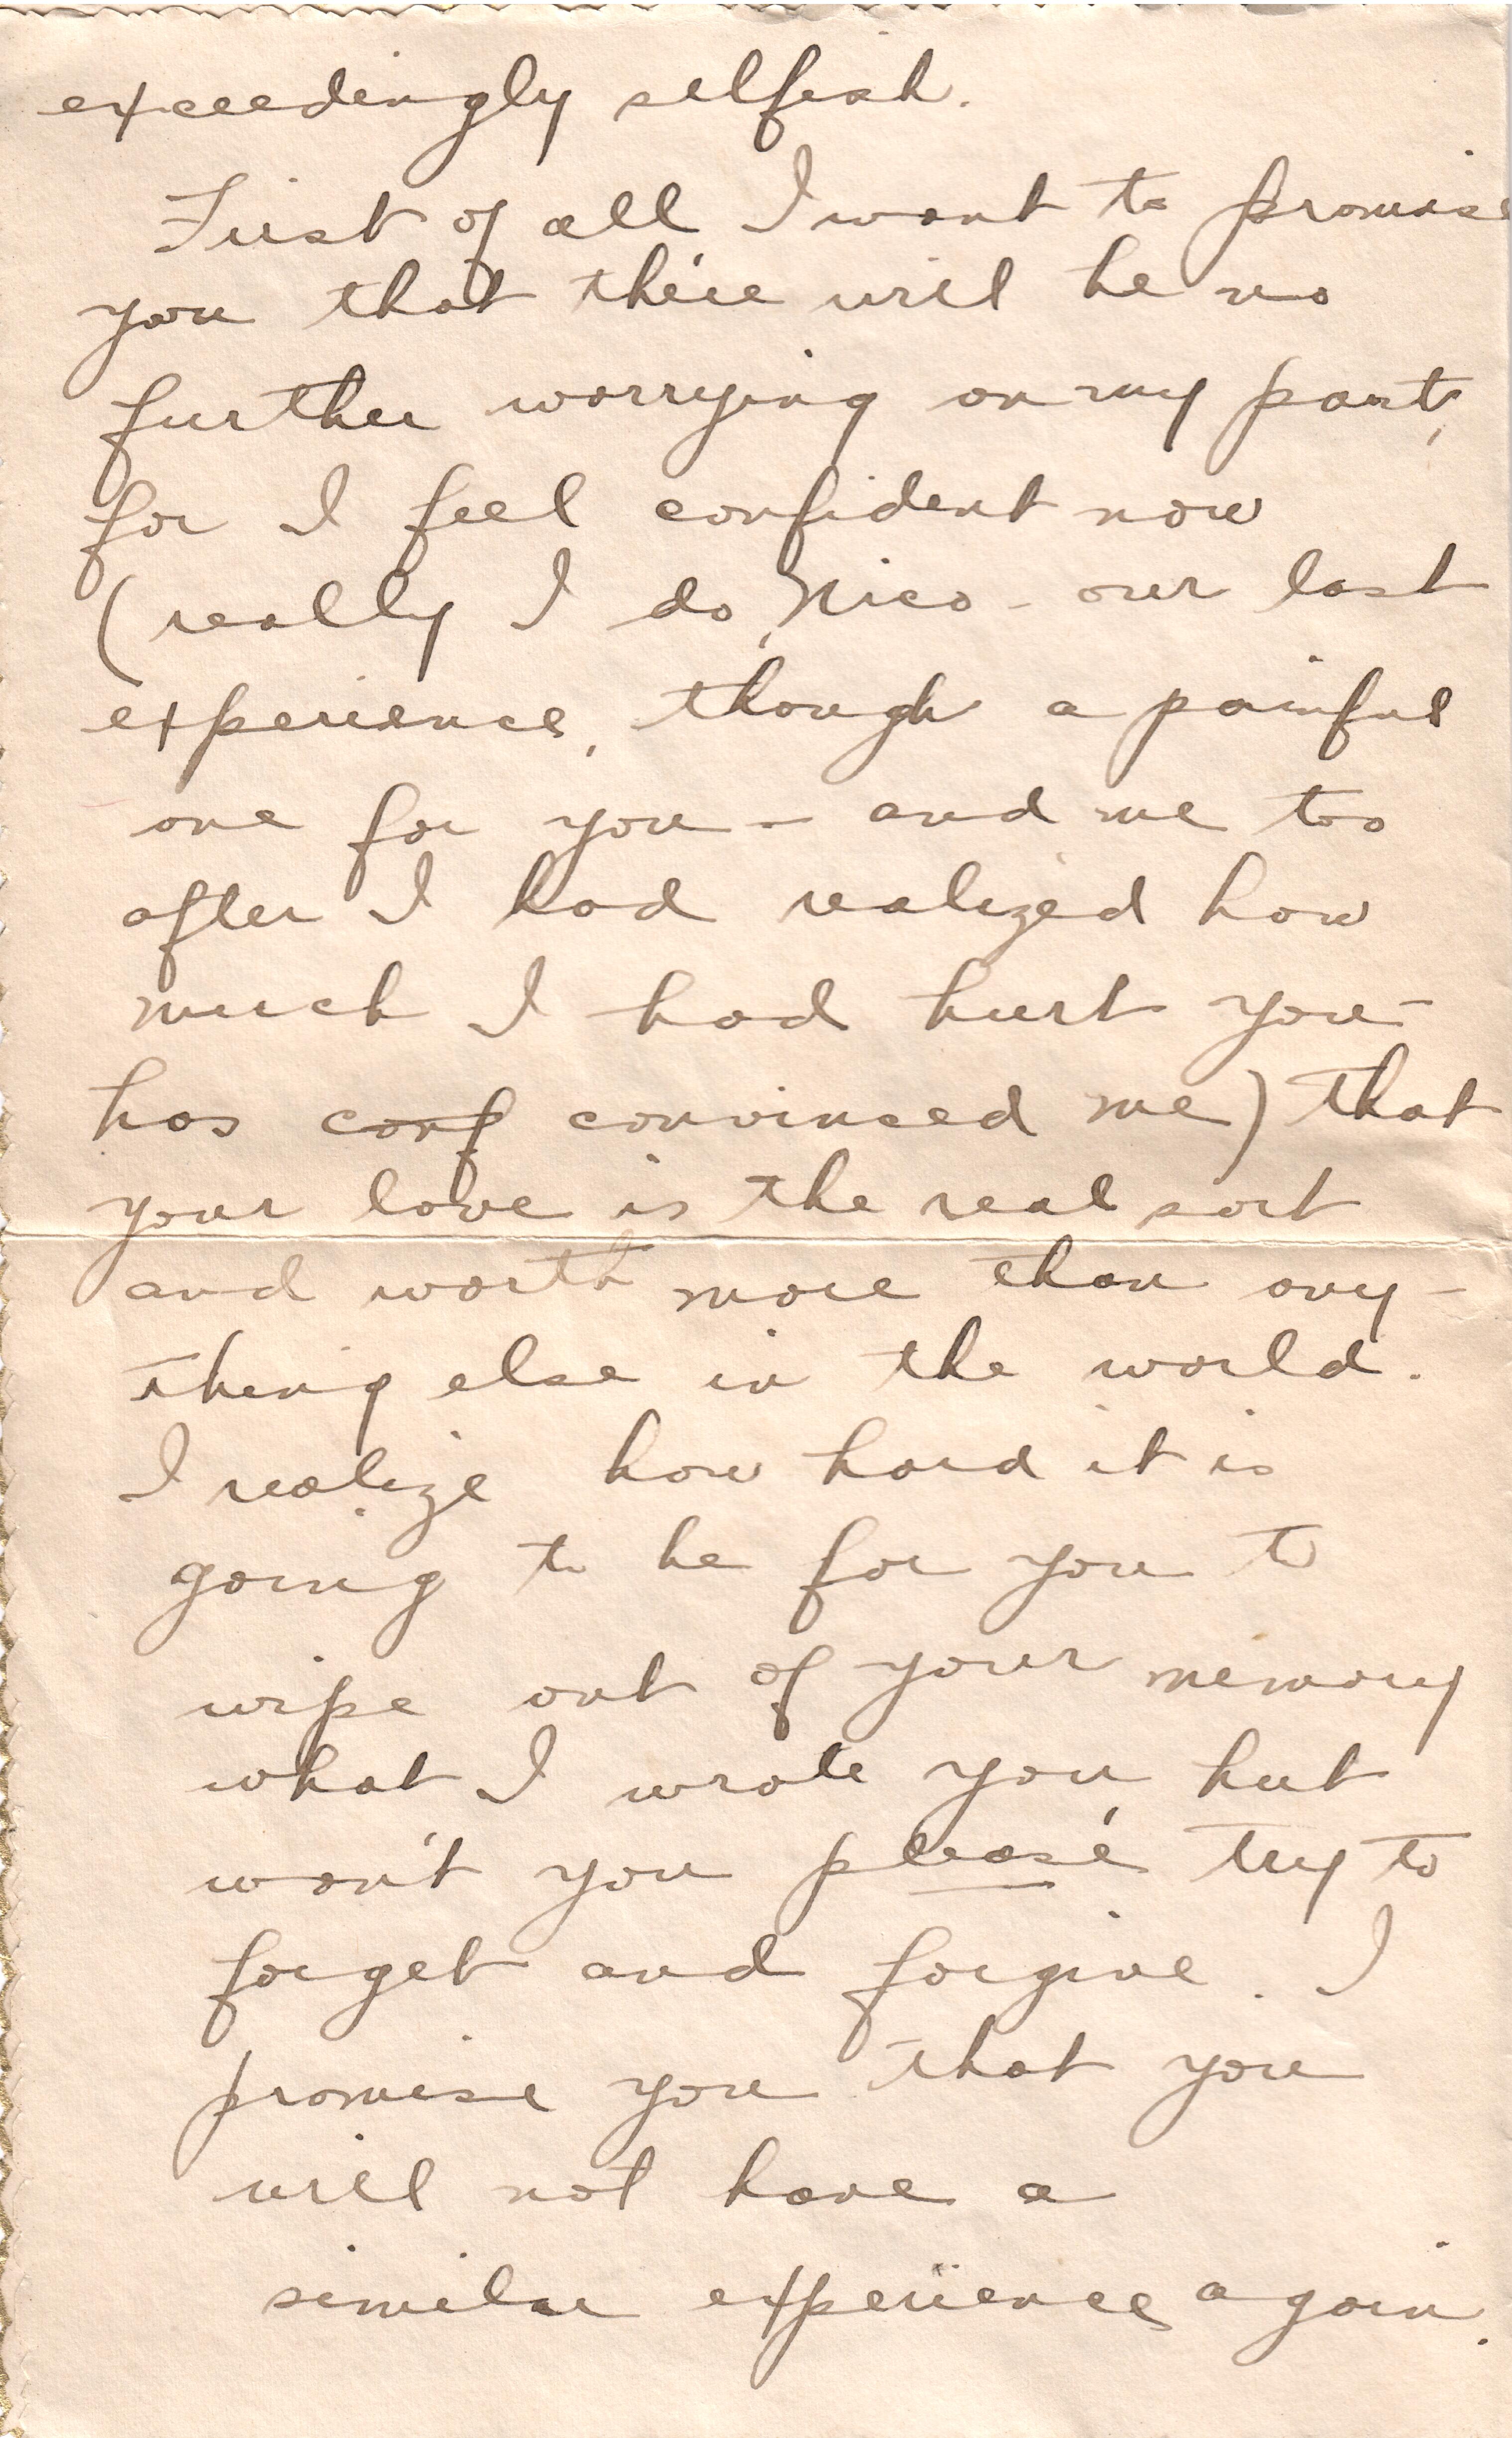 exceedingly selfish.
First of all I want to promise
you that there will be no
further worrying on my part,
for I feel confident now
(really I do, Nico - our last
experience, though a painful
one for you - and me too
after I had realized how
much I had hurt you -
has conf convinced me) that
your love is the real sort
and worth more than any-
thing else in the world.
I realize how hard it is
going to be for you to
wipe out of your memory
what I wrote you, but
won't you please try to
forget and forgive. I
promise you that you
will not have a
similar experience again.